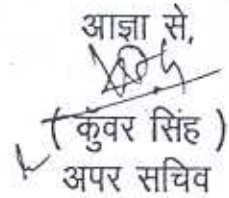 आज्ञा से,
( कुंवर सिंह )
अपर सचिव